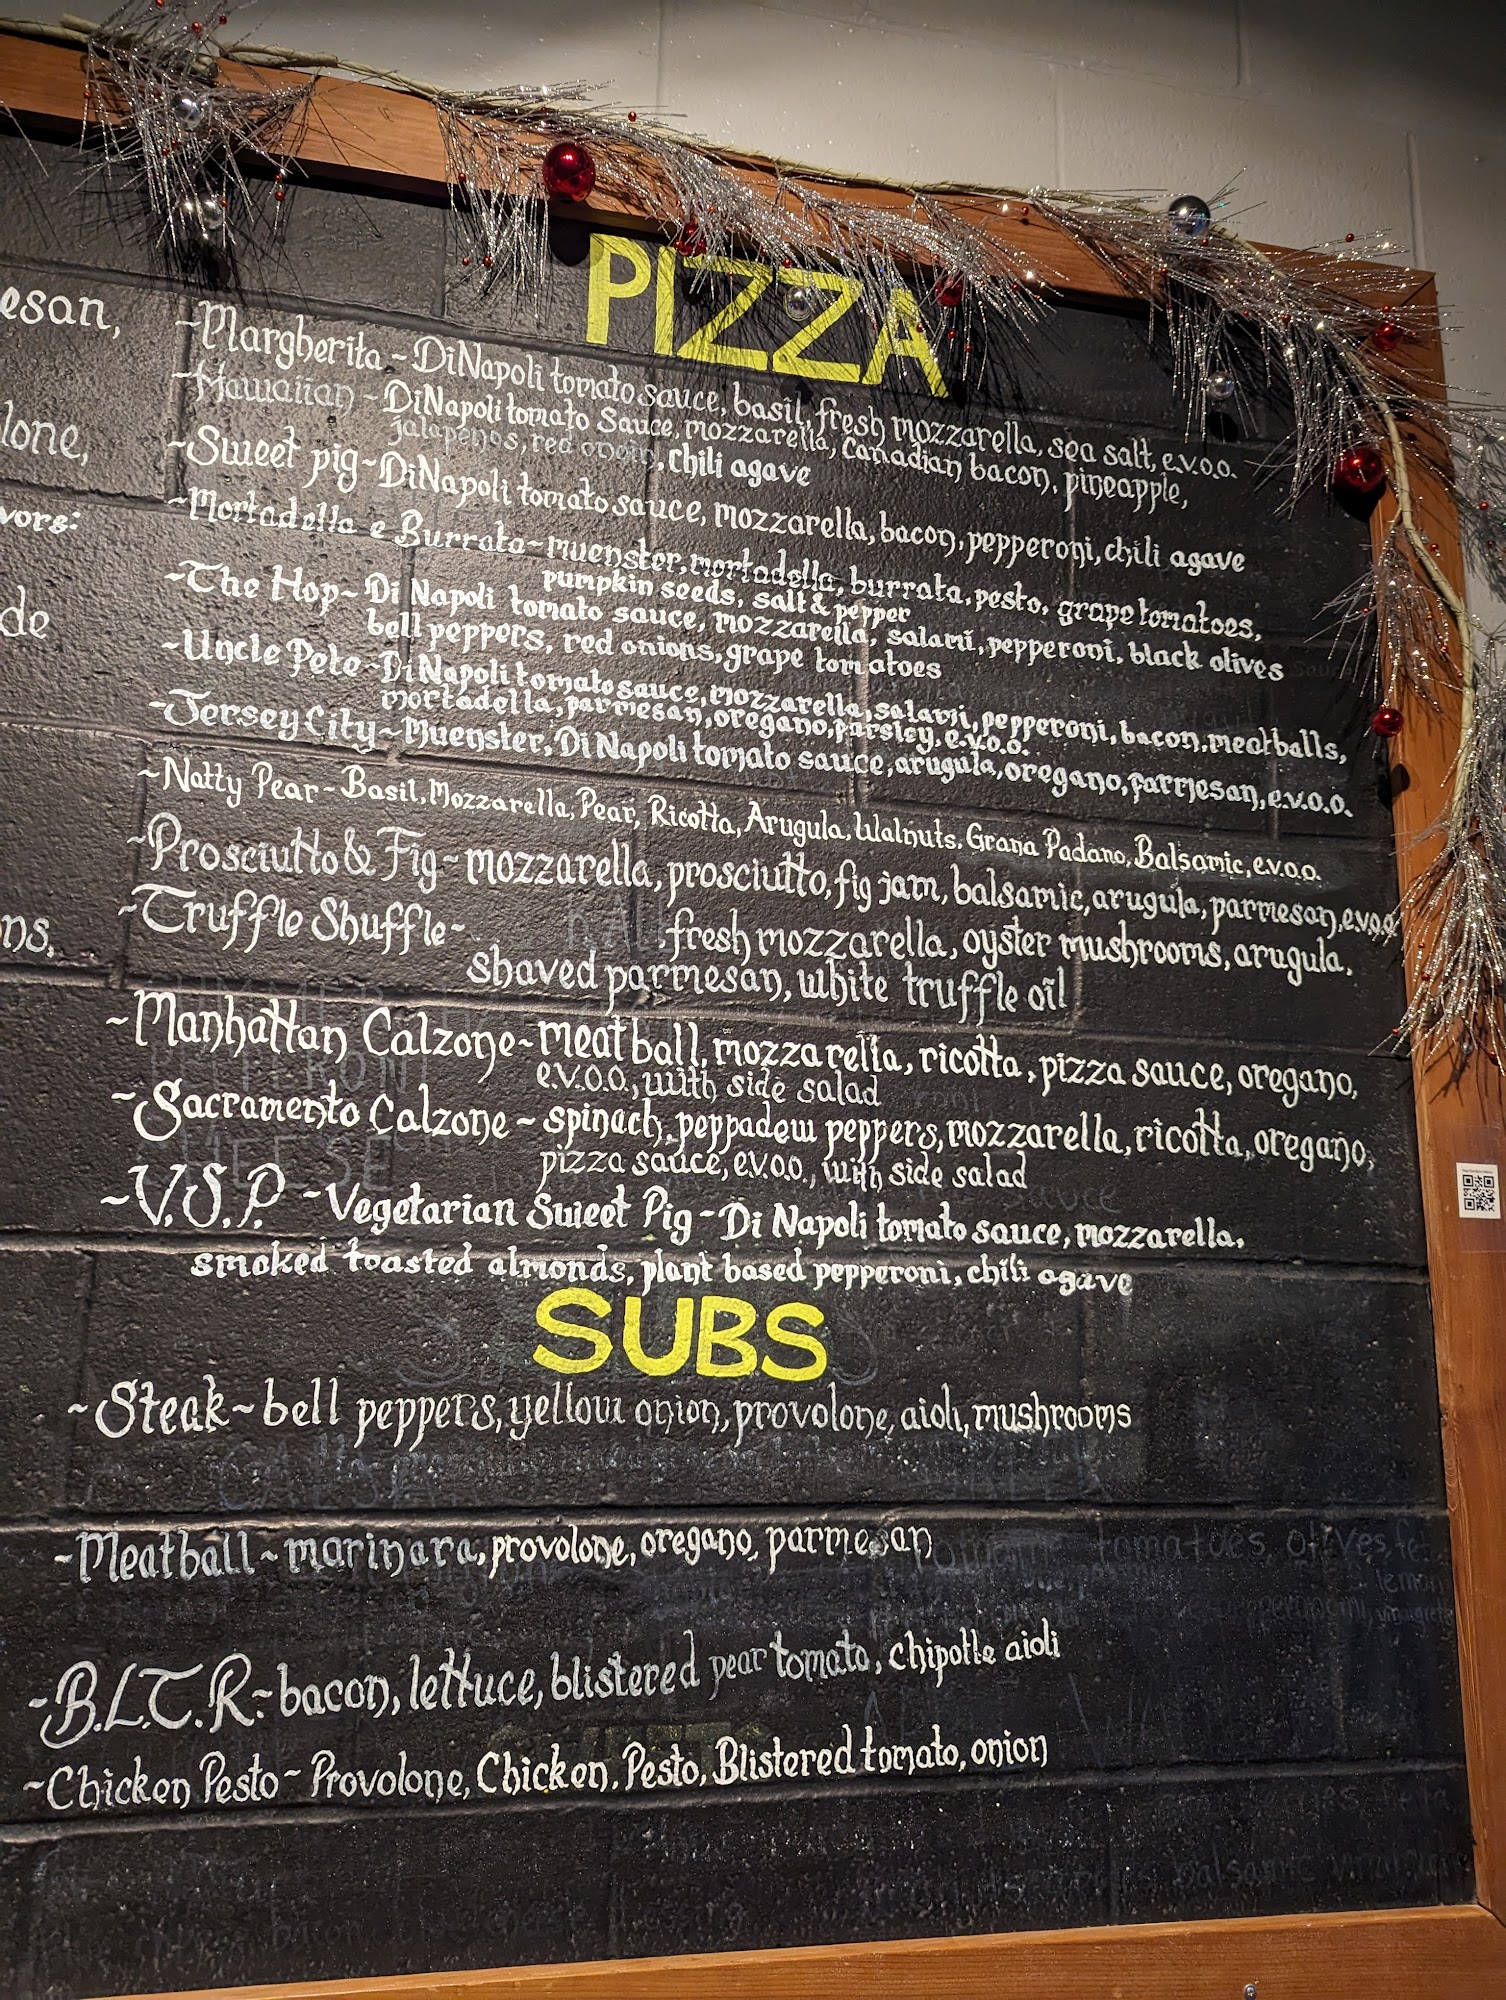 esan,
lone,
vors:
de
ns,
PIZZA
~Margherita~DiNapoli tomato sauce, basil, fresh mozzarella, sea salt, e.v.o.o.
~Hawaiian~DiNapoli tomato Sauce, mozzarella, Canadian bacon, pineapple,
jalapeños, red onion, chili agave
~Sweet pig~DiNapoli tomato sauce, mozzarella, bacon, pepperoni, chili agave
~Mortadella e Burrata~muenster, mortadella, burrata, pesto, grape tomatoes,
pumpkin seeds, salt & pepper
~The Hop~Di Napoli tomato sauce, mozzarella, salami, pepperoni, black olives
bell peppers, red onions, grape tomatoes
~Uncle Pete~Di Napoli tomato sauce, mozzarella, salami, pepperoni, bacon, meatballs,
mortadella, parmesan, oregano, parsley, e.v.o.o.
~Jersey City~Muenster, Di Napoli tomato sauce, arugula, oregano, parmesan, e.v.o.o.
~Natty Pear~Basil, Mozzarella, Pear, Ricotta, Arugula, Walnuts, Grana Padano, Balsamic, e.v.o.o.
~Prosciutto & Fig~mozzarella, prosciutto, fig jam, balsamic, arugula, parmesan, e.v.o.o.
~Truffle Shuffle~ fresh mozzarella, oyster mushrooms, arugula,
shaved parmesan, white truffle oil
~Manhattan Calzone~meatball, mozzarella, ricotta, pizza sauce, oregano,
e.v.o.o., with side salad
~Sacramento Calzone~spinach, peppadew peppers, mozzarella, ricotta, oregano,
pizza sauce, e.v.o.o., with side salad
~V.S.P. ~Vegetarian Sweet Pig~Di Napoli tomato sauce, mozzarella,
smoked toasted almonds, plant based pepperoni, chili agave
SUBS
~Steak~bell peppers, yellow onion, provolone, aioli, mushrooms
~Meatball~marinara, provolone, oregano, parmesan
~B.L.T.R.~bacon, lettuce, blistered pear tomato, chipotle aioli
~Chicken Pesto~Provolone, Chicken, Pesto, Blistered tomato, onion